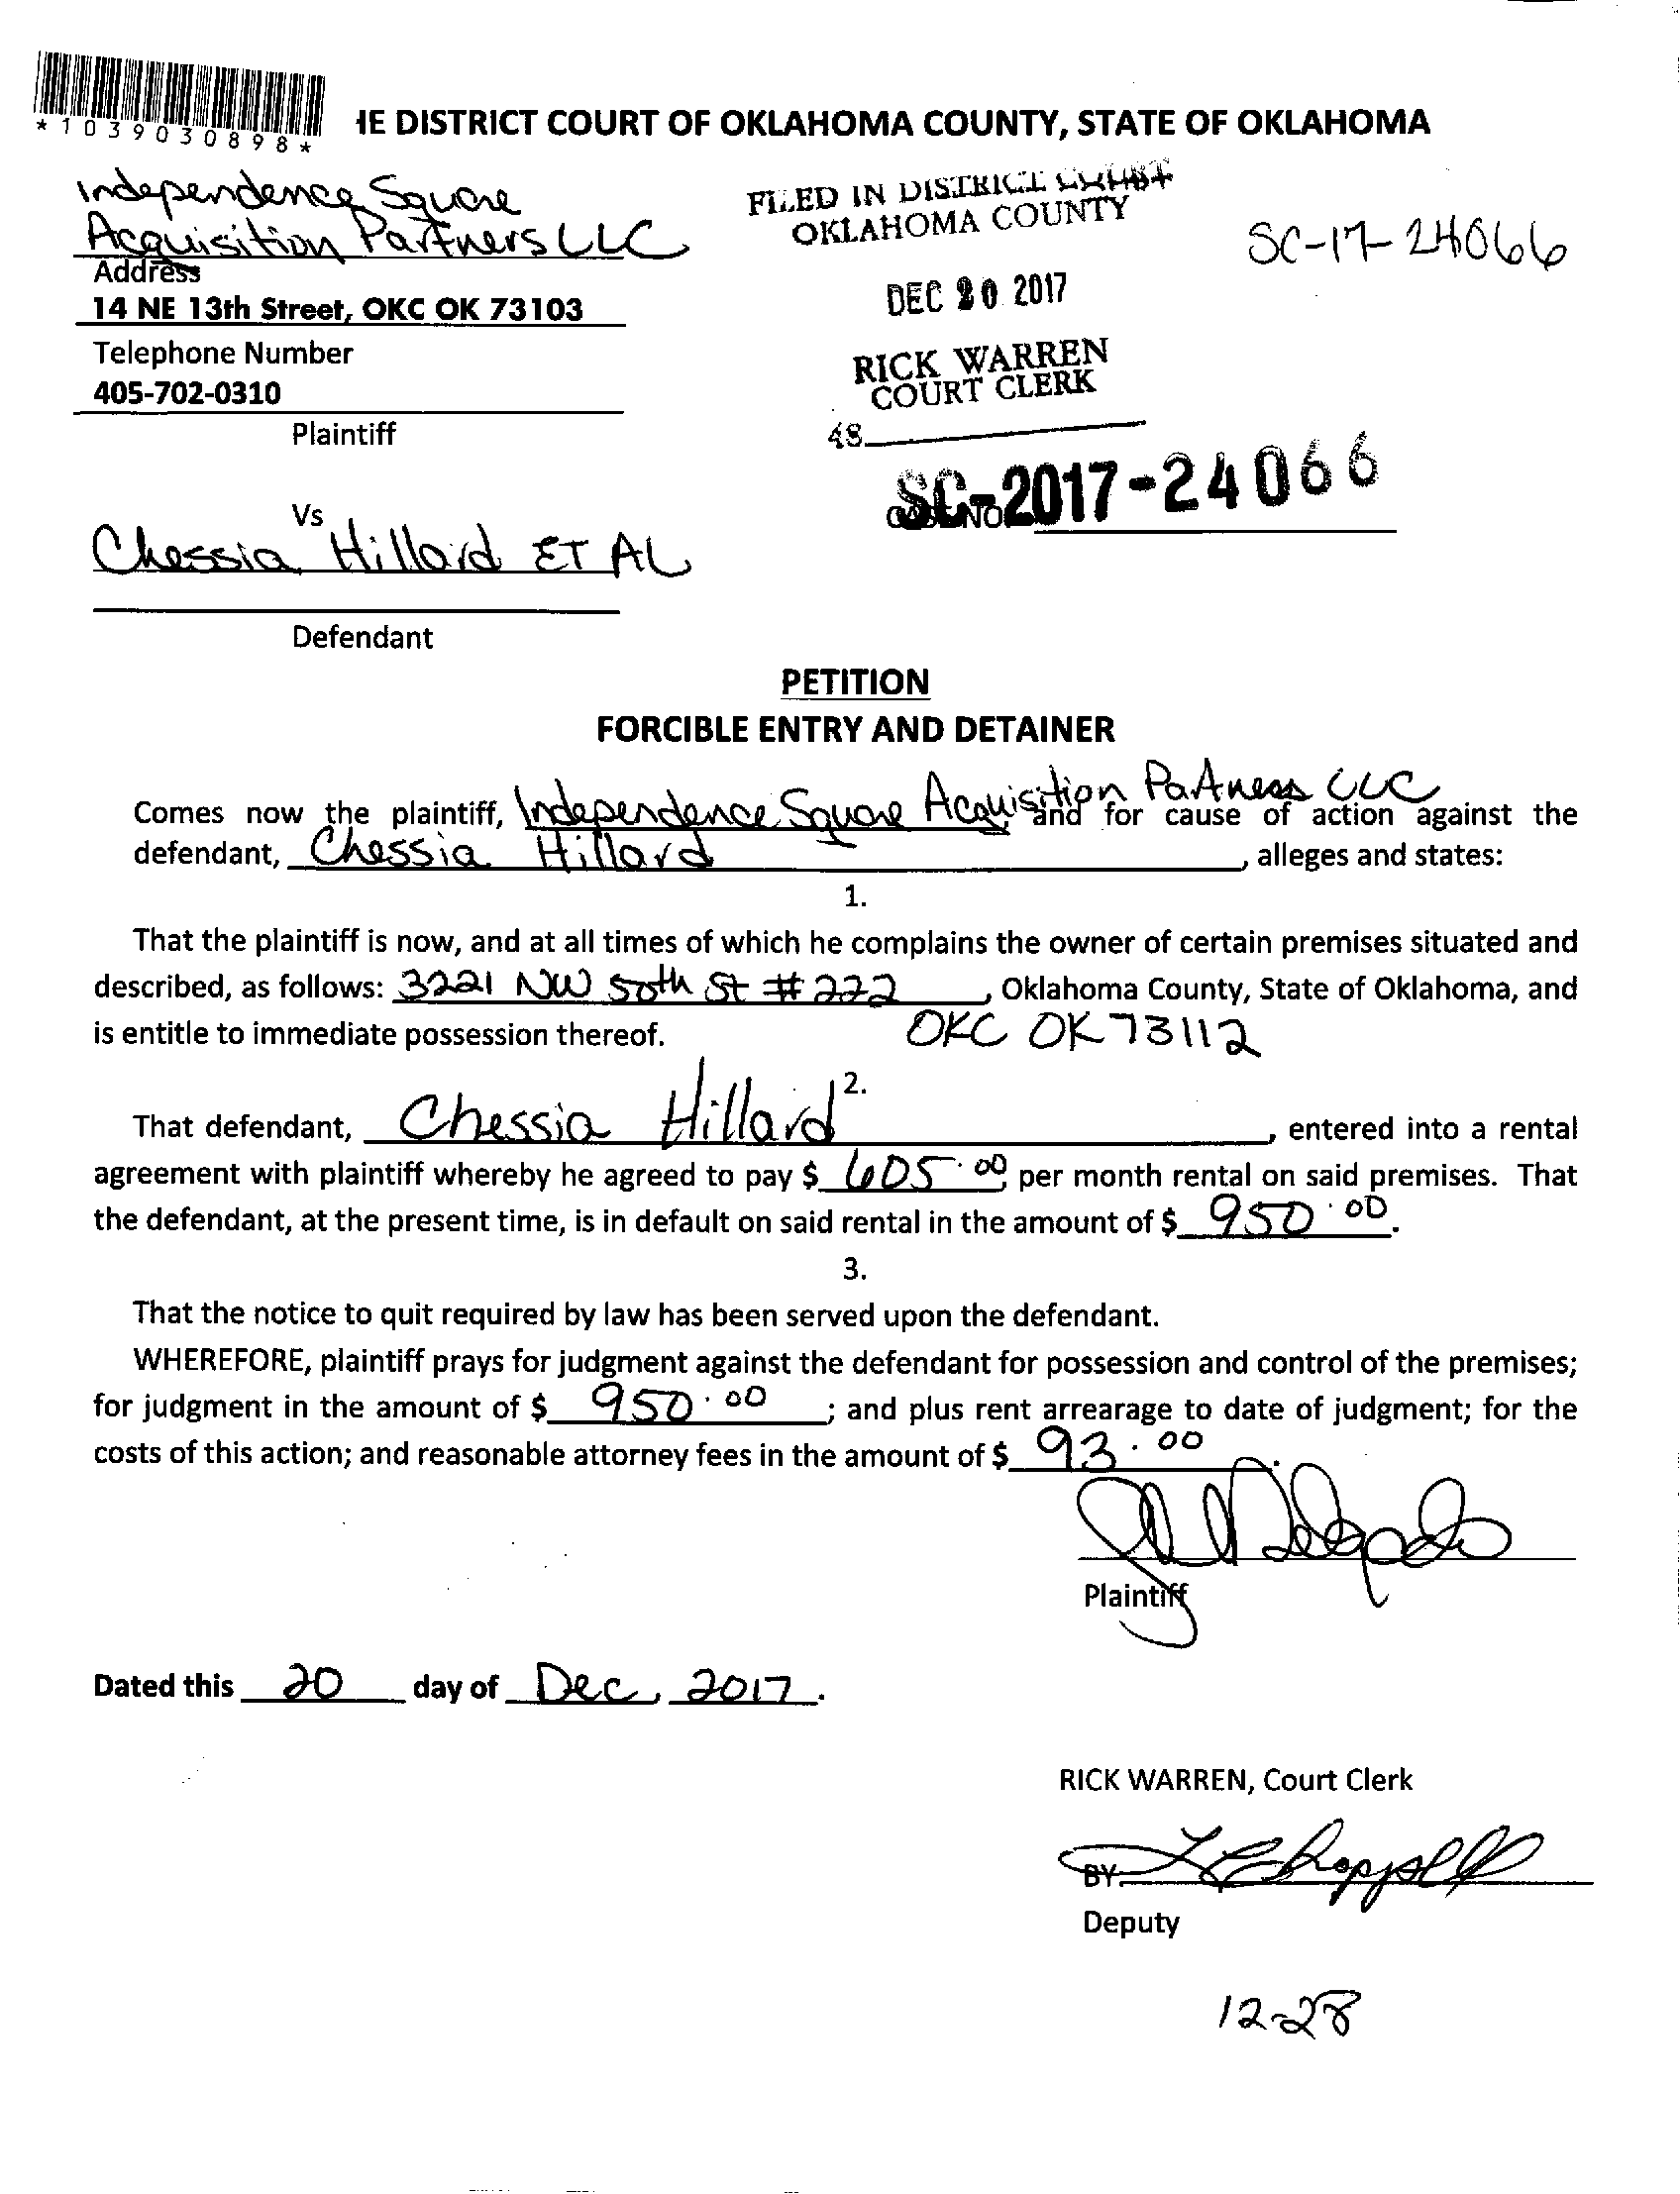 *1039030898*
HE DISTRICT COURT OF OKLAHOMA COUNTY, STATE OF OKLAHOMA
Independence Square
Acquisition Partners LLC
Address
14 NE 13th Street, OKC OK 73103
Telephone Number
405-702-0310
Plaintiff
FILED IN DISTRICT COURT
OKLAHOMA COUNTY
DEC 20 2017
RICK WARREN
COURT CLERK
48
SC-17-24066
SC-2017-24066
CASE NO
Vs
Chessia Hillard ET AL
Defendant
PETITION
FORCIBLE ENTRY AND DETAINER
Comes now the plaintiff, Independence Square Acquisition Partners LLC and for cause of action against the
defendant, Chessia Hillard, alleges and states:
1.
That the plaintiff is now, and at all times of which he complains the owner of certain premises situated and
described, as follows: 3221 NW 50th St # 222, Oklahoma County, State of Oklahoma, and
is entitle to immediate possession thereof. OKC OK 73112
2.
That defendant, Chessia Hillard, entered into a rental
agreement with plaintiff whereby he agreed to pay $ 605.00 per month rental on said premises. That
the defendant, at the present time, is in default on said rental in the amount of $ 950.00.
3.
That the notice to quit required by law has been served upon the defendant.
WHEREFORE, plaintiff prays for judgment against the defendant for possession and control of the premises;
for judgment in the amount of $ 950.00; and plus rent arrearage to date of judgment; for the
costs of this action; and reasonable attorney fees in the amount of $ 93.00.
Plaintiff
Dated this 20 day of Dec, 2017.
RICK WARREN, Court Clerk
BY:
Deputy
12-28